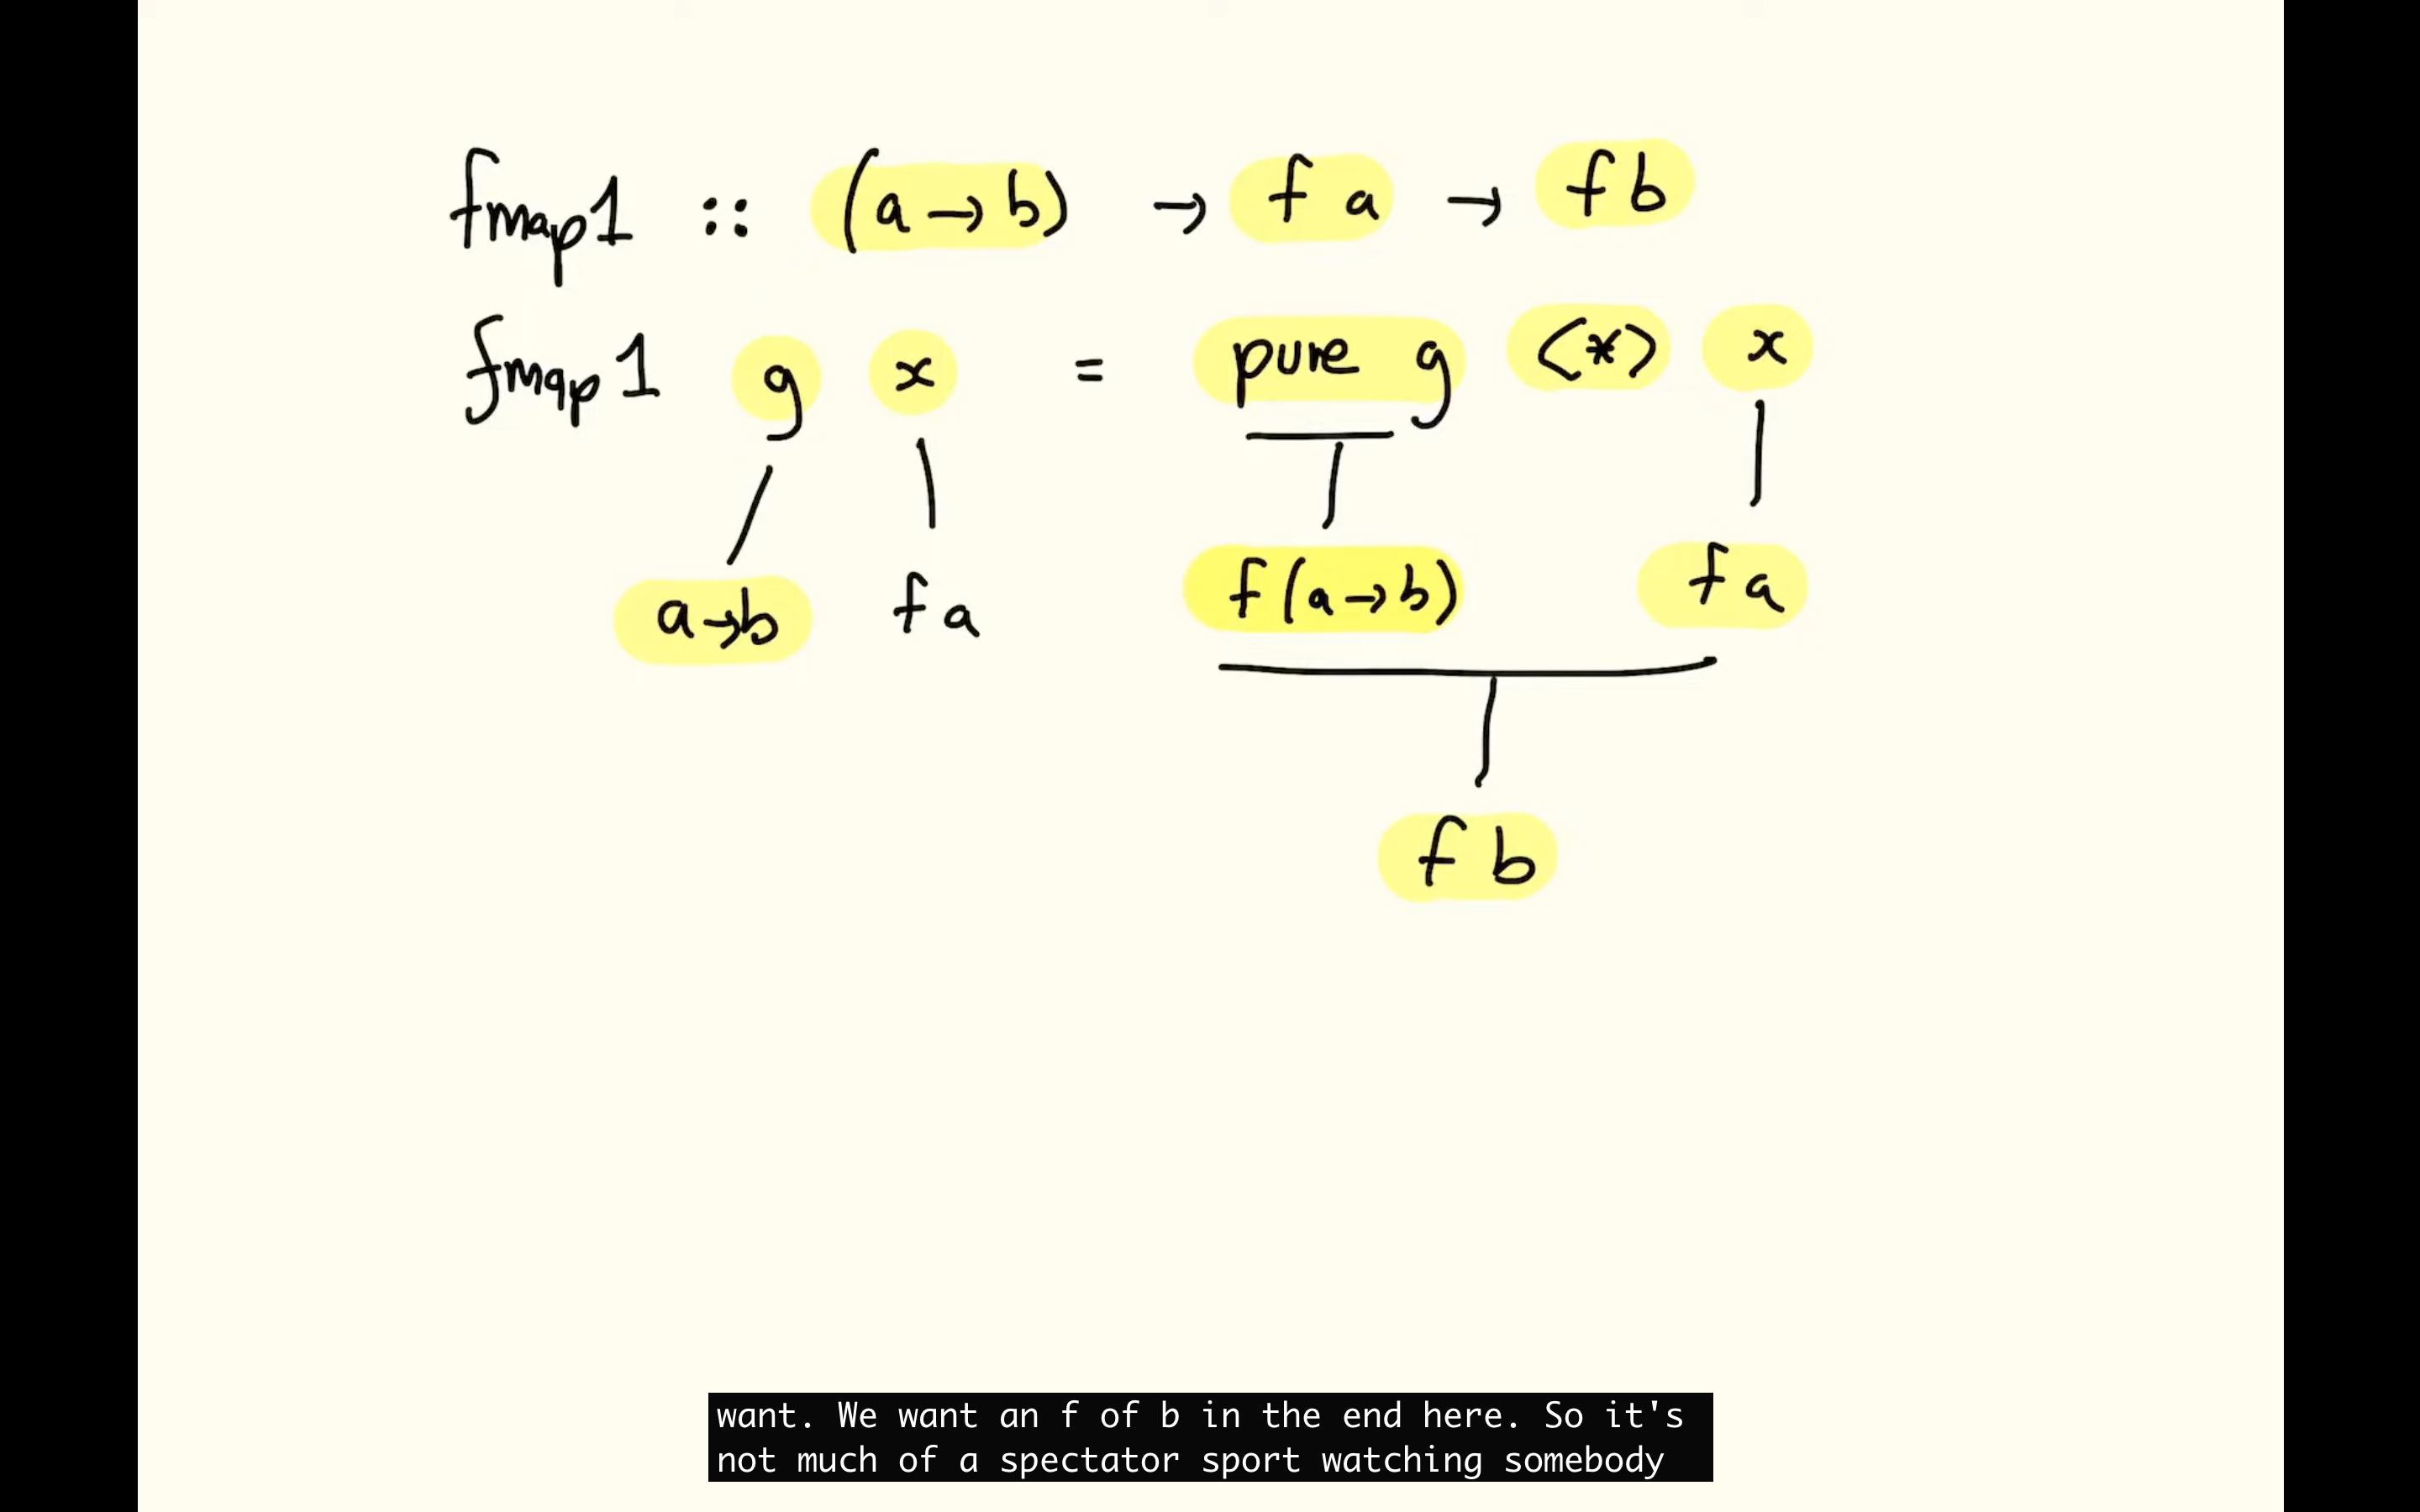 fmap1 :: (a → b) → f a → f b
fmap1 g x = pure g <*> x
a→b f a f(a→b) f a
f b
want. We want an f of b in the end here. So it's
not much of a spectator sport watching somebody